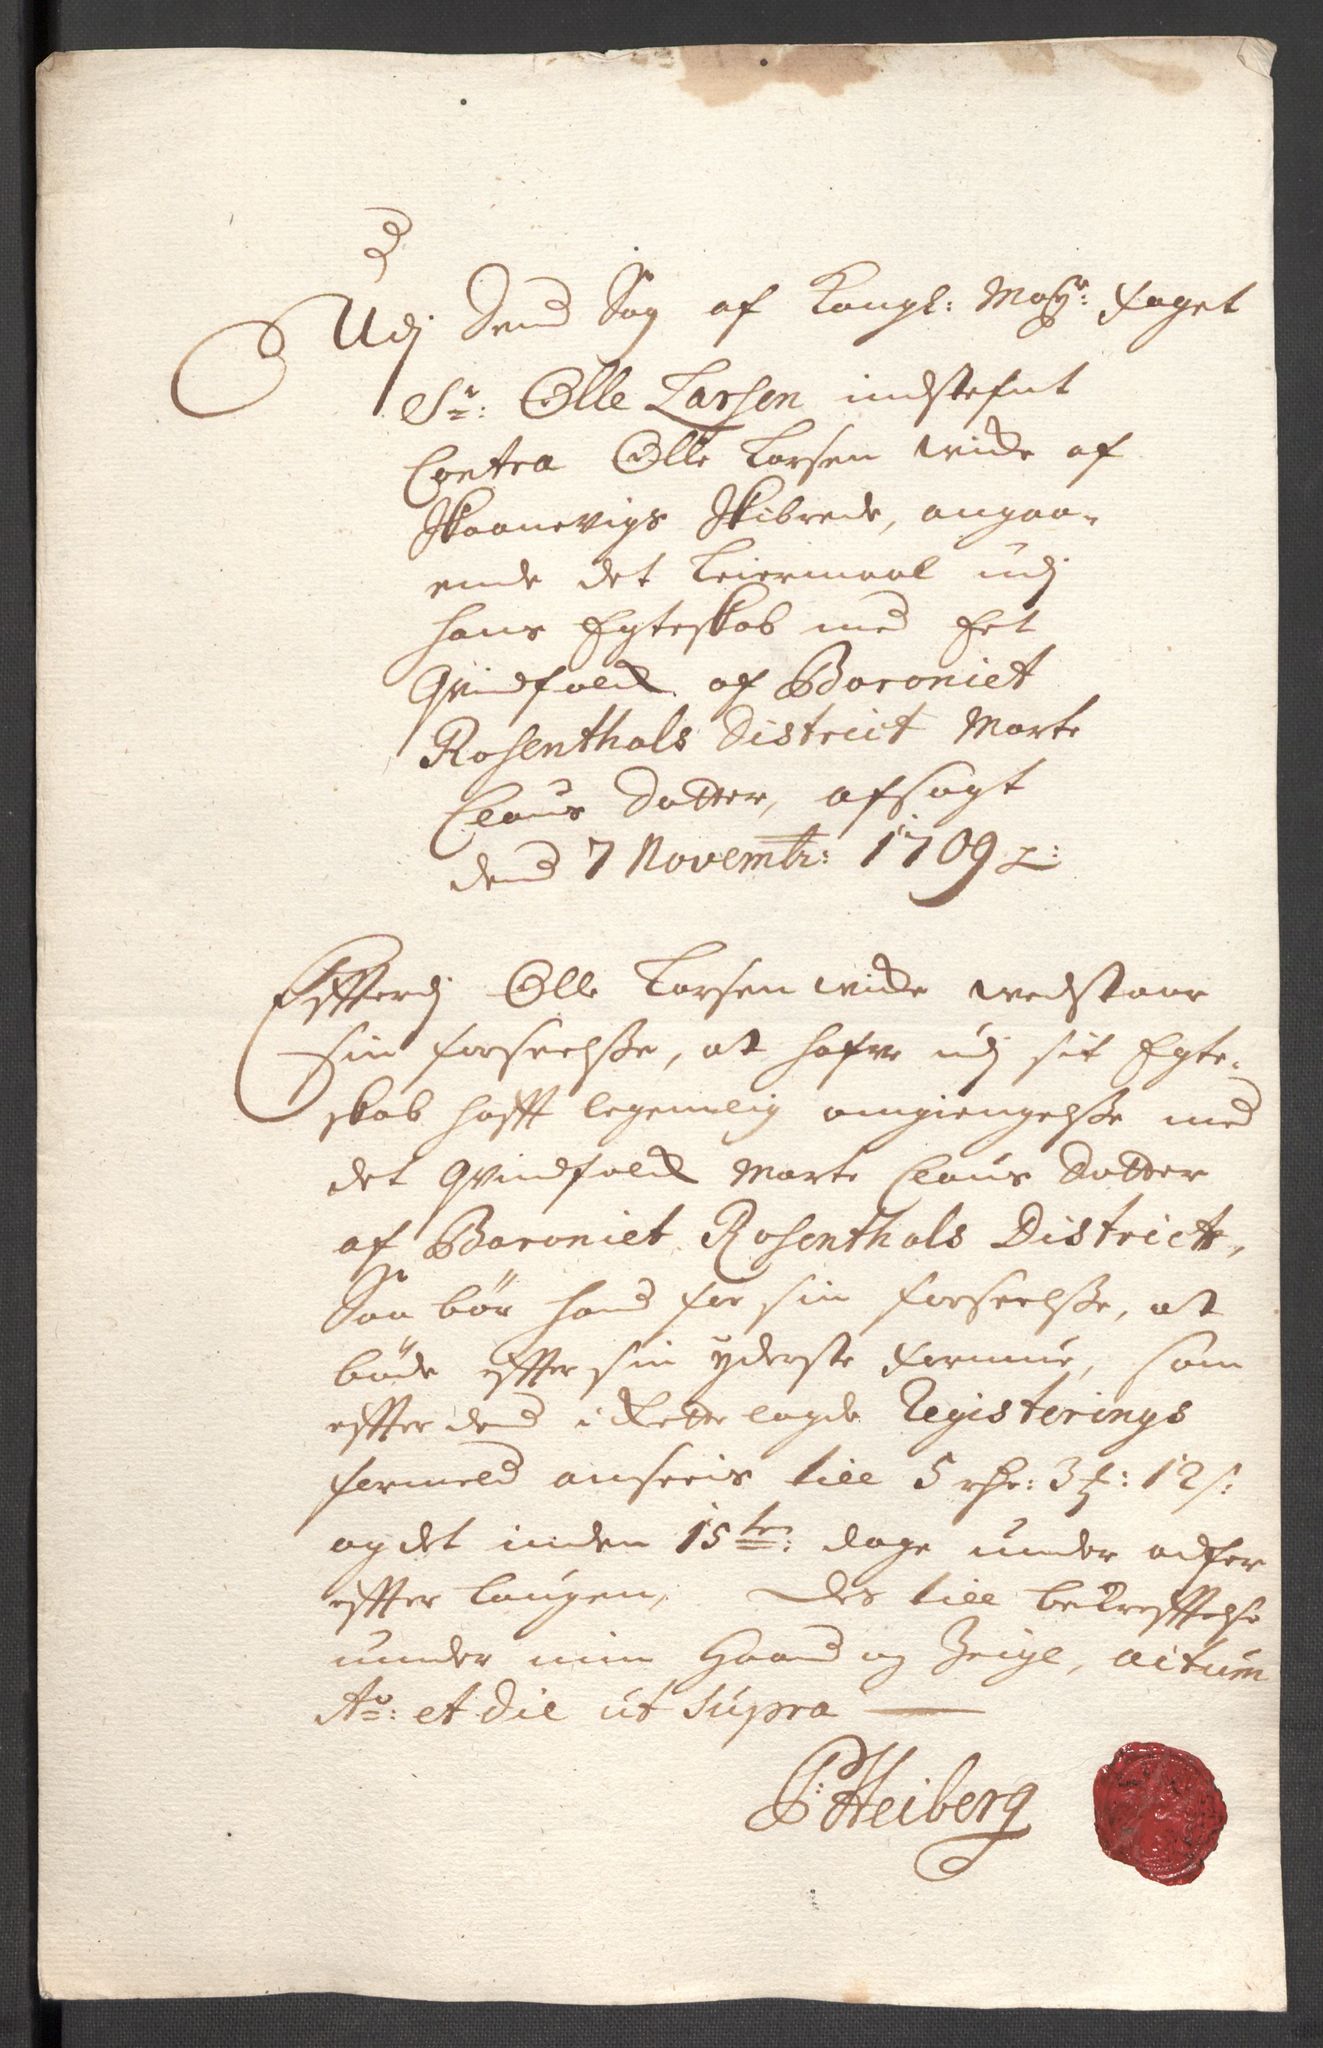 Udj Dend Sag af Kongl: May:tz Faaget
Sr: Olle Larsen indstefnt
Contra Olle Larsen Wide af
Skaanevigs Skibrede, angaa-
ende det Leiermaal udj
hans Egteskab med Eet
Qvindfolck af Baroniet
Rosenthals District Marte
Claus Datter, afsagt
dend 7 Novembr: 1709
Effterdj Olle Larsen Wide vedstaar
sin forseelsse, at hafve udj sit Egte-
skab hafft legemlig omgiengelsse med
det Qvindfolck Marte Claus Datter
af Baroniet Rosenthals District,
Saa bør hand for sin forseelsse, at
bøde effter sin yderste formue, som
effter dend i Rette lagde Registerings
formeld ansees till 5 rdr: 3 ₻: 12 s:
og det inden 15ten: dage under adfer
effter Laugen, Des till bekrefftelse
under min Haand og Zeigl, actum
Ao: et die ut supra
P: Heiberg